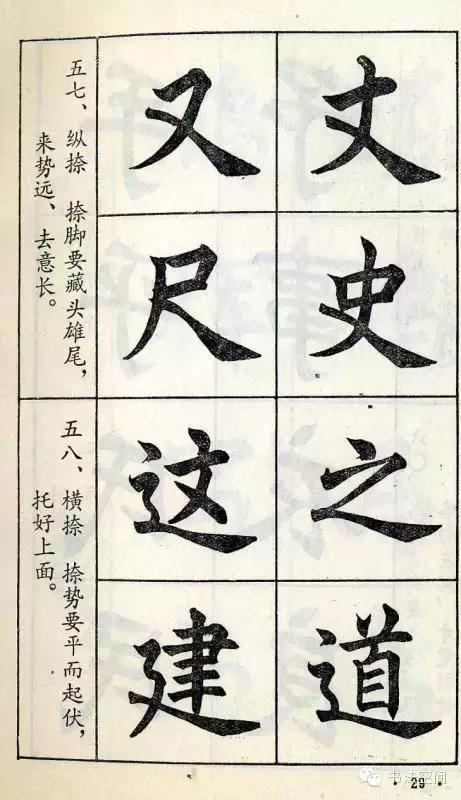 五七、纵捺 捺脚要藏头雄尾，
来势远、去意长。
又 丈
尺 史
五八、横捺 捺势要平而起伏，
托好上面。
这 之
建 道
· 29 ·
书法空间